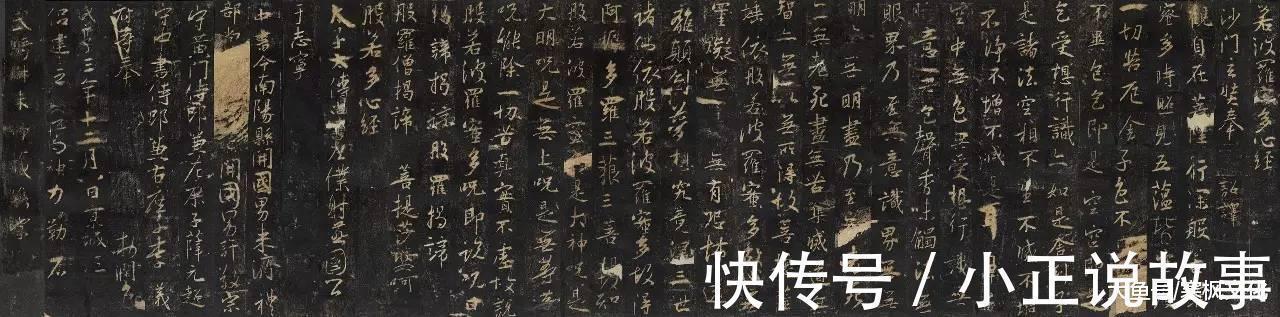 若波羅蜜多心經
沙門玄奘奉 詔譯
觀自在菩薩行深般
蜜多時照見五蘊皆
一切苦厄舍利子色不
不異色色即是空空
色受想行識亦如是舍
是諸法空相不生不滅
不淨不增不減是
空中無色無受想行識
意無色聲香味觸法
眼界乃至無意識界無
無明盡乃至
無老死盡無苦集滅
智亦無得以無所得故菩
埵依般若波羅蜜多
罣礙無 無有恐怖
離顛倒夢想究竟涅槃三世
諸佛依般若波羅蜜多故得
阿耨多羅三藐三菩提故知
般若波羅蜜 是大神呪是
大明呪是無上呪是無等等
呪能除一切苦真實不虛故說
般若波羅蜜多呪即說呪曰
揭諦揭諦 般羅揭諦
般羅僧揭諦 菩提莎婆呵
般若多心經
太子太傅尚書左僕射燕國公
于志寧
中書令南陽縣開國男來濟 禮
部尚 開國男許敬宗
守黃門侍郎兼左庶子薛元超
守中書侍郎兼右庶子李義
府等奉 勅潤色
咸亨三年十二月八日京城
侶建立 神力勒石
武騎尉朱靜藏鐫
快传号 / 小正说故事